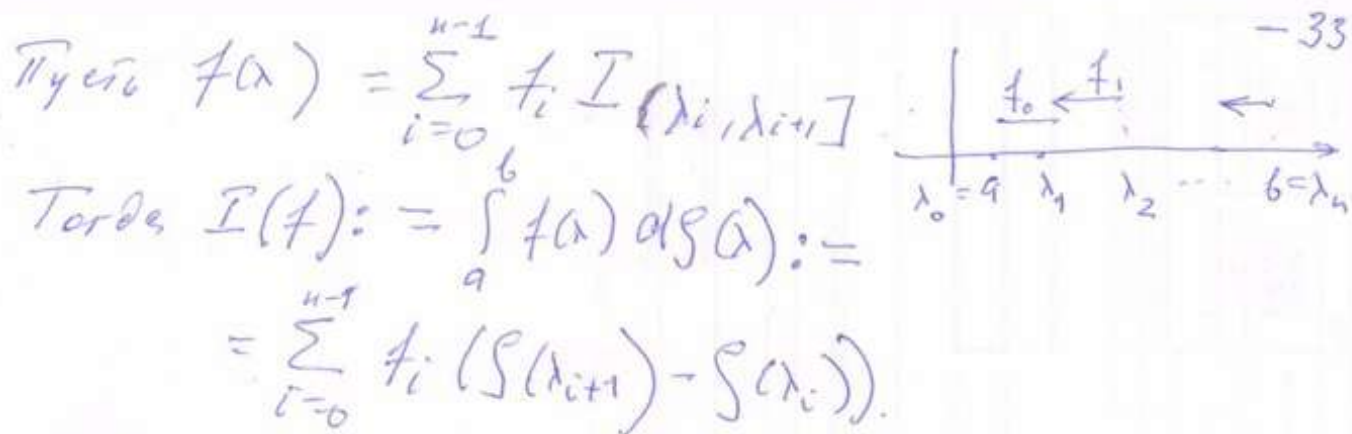 - 33
Пусть f(λ) = \sum_{i=0}^{n-1} f_i I_{(λ_i, λ_{i+1}]}
f_0 f_1
λ_0 = a λ_1 λ_2 ... b = λ_n
Тогда I(f) := \int_a^b f(λ) dζ(λ) :=
= \sum_{i=0}^{n-1} f_i (ζ(λ_{i+1}) - ζ(λ_i)).